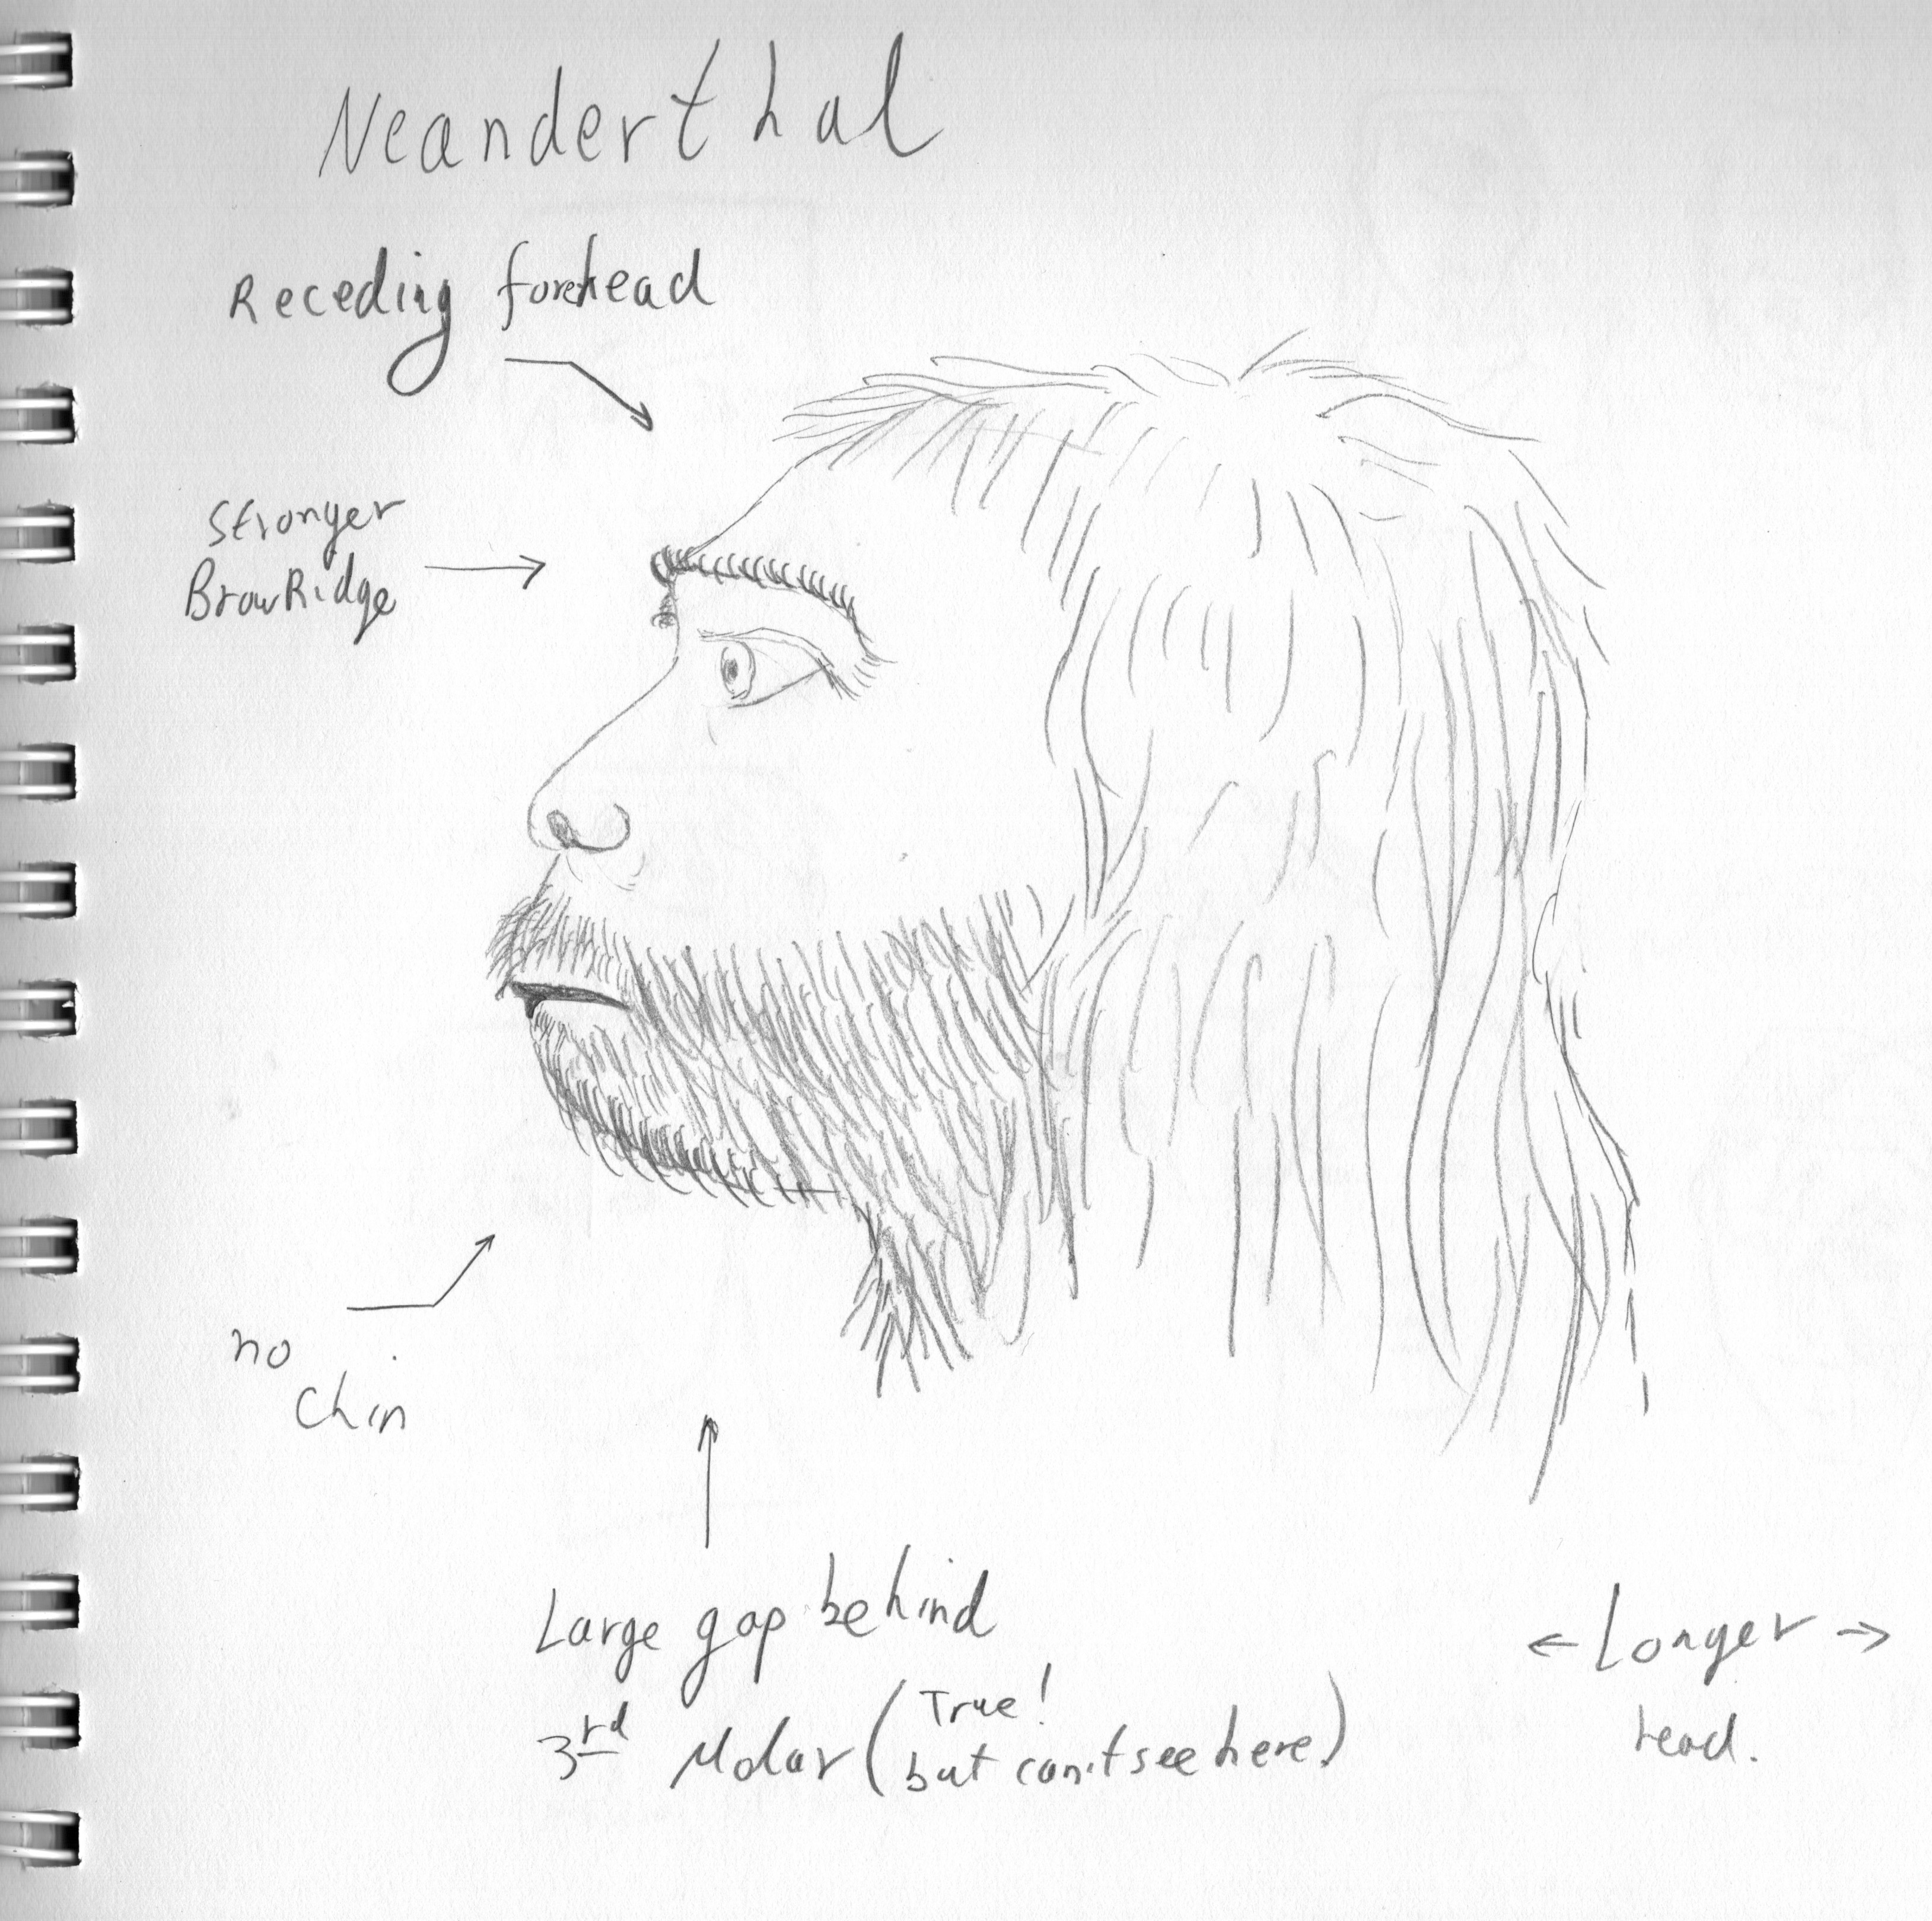 Neanderthal
Receding forehead
Stronger
BrowRidge
no
Chin
Large gap behind
3rd Molar (True!
but can't see here)
← Longer →
head.